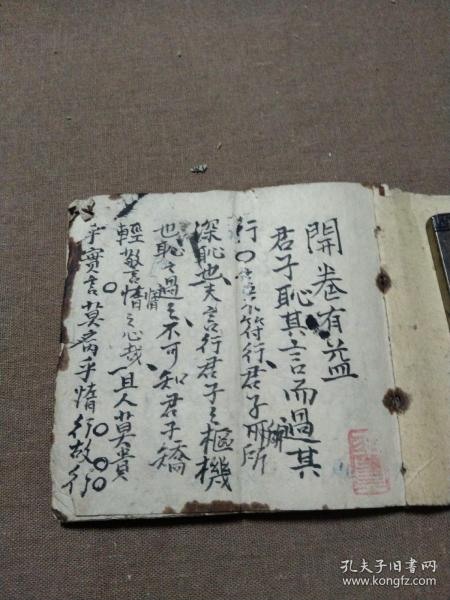 開卷有益
君子恥其言而過其
行言不符行君子所
深恥也夫言行君子之樞機
也恥之過之不可知君子矯
輕警惰之心哉且人莫貴
乎實言莫病乎惰行故行
孔夫子旧书网
www.kongfz.com